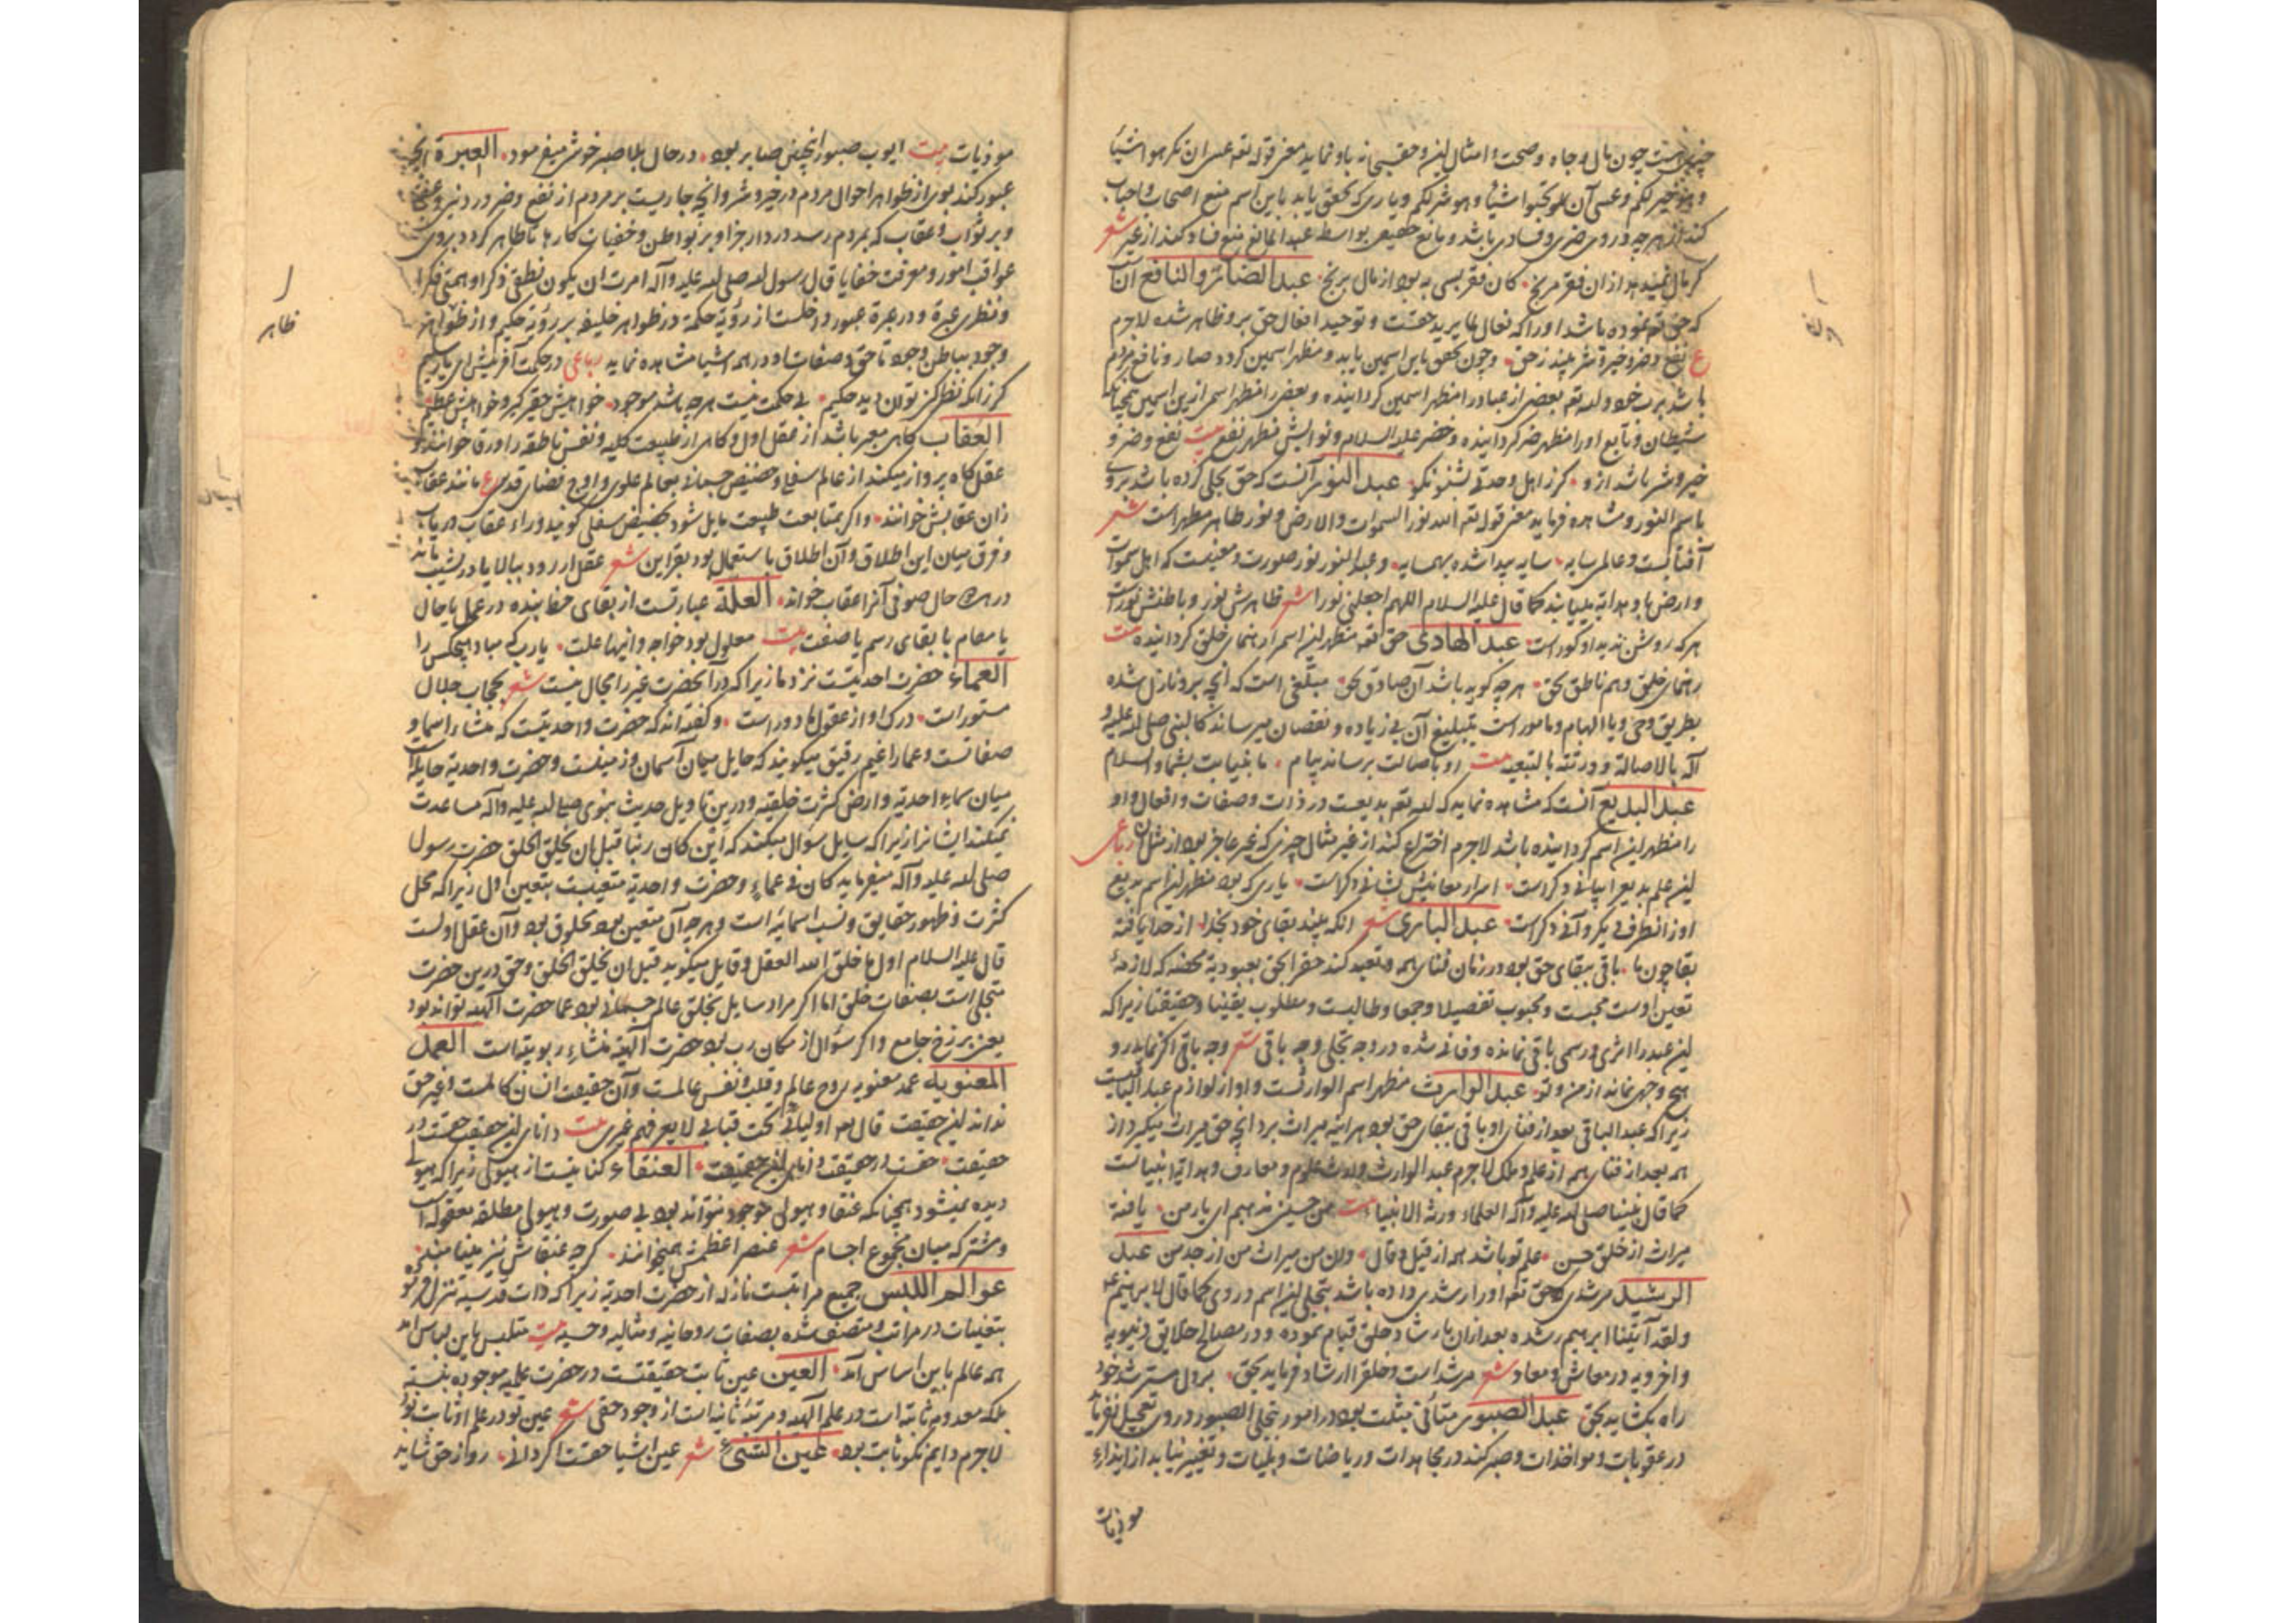 چیزیست چون مال و جاه و صحت و امثال این و حقیقی باو نماید معنی قوله تعم عسی ان تکرهوا شیئا
و هو خیر لکم و عسی آن تحبوا شیئا و هو شر لکم و یاری که تحقق یابد باین اسم منع اصحاب و احباب
کند از هر چه در وی ضری و فسادی باشد و مانع حقیقی بواسطه عبد المانع منع فساد کند از غیر شعر
گر مال نمیدهد ازان فقر مرنج کان فقر بسی به بود از مال برنج عبد الضار و النافع آن
که حق تعم نموده باشد او را که فعال لما یرید حقست و توحید افعال حق برو ظاهر شده لاجرم
ع نفع و ضر و خیر و شر بیند ز حق و چون تحقق باین اسمین یابد و مظهر اسمین گردد ضار و نافع مردم
باشد برب خود و لله تعم بعضی از عباد را مظهر اسمین گردانیده و بعضی را مظهر اسمی ازین اسمین همچنانکه
شیطان و تابع او را مظهر ضر گردانیده و خضر علیه السلام و توابش مظهر نفع بیت نفع و ضر و
خیر و شر باشد ازو گر ز اهل وحدتی بشنو نکو عبد النور آنست که حق تجلی کرده باشد برو
باسم النور و مشاهده فرماید معنی قوله تعم الله نور السموات و الارض و نور ظاهر مظهر است شعر
آفتابست و عالمی سایه سایه پیدا شده بهمسایه و عبد النور نور صورت و معنیست که اهل سموات
و ارض باو هدایه یابند کما قال علیه السلام اللهم اجعلنی نورا شعر ظاهرش نور و باطنش نور است
هر که روشن ندید او کور است عبد الهادی حق تعم مظهر این اسم را رهنمای خلق گردانیده بیت
رهنمای خلق و هم ناطق بحق هر چه گوید باشد آن صادق بحق مبلغی است که آنچه برو نازل شده
بطریق وحی و یا الهام و مامور است بتبلیغ آن بی زیاده و نقصان میرساند کالنبی صلی الله علیه و
آله بالاصالة و ورثته بالتبعیه بیت او باصالت برساند پیام ما بنیابت بشما و السلام
عبد البدیع آنست که مشاهده نماید که لله تعم بدیعست در ذات و صفات و افعال و او
را مظهر این اسم گردانیده باشد لاجرم اختراع کند از غیر مثال چیزی که غیر عاجز بود از مثل آن رباعی
این علم بدیع را بیانی دگر است اسرار معانیش نشانی دگر است یاری که بود مظهر این اسم بدیع
او ز انطرف بکر و آنی دگر است عبد الباقی شعر انکه بیند بقای خود بخدا از خدا یافته
بقا چون ما باقی ببقای حق بود در زمان فنای همه و تعبد کند حق را بحق بعبودیة محضه که لازمهٔ
تعین اوست محبست و محبوب تفصیلا و جمعا و طالبست و مطلوب یقینا و حقیقتا زیرا که
این عبد را اثری و رسمی باقی نمانده و فانی شده در وجه تجلی وجه باقی شعر وجه باقی اگر نماید رو
هیچ وجهی نماند از من و تو عبد الوارث مظهر اسم الوارثست و او از لوازم عبد الباقیست
زیرا که عبد الباقی بعد از فنای او باقی ببقای حق بود هر آینه میراث برد آنچه حق میراث میگیرد از
همه بعد از فنای همه از علم و ملک لاجرم عبد الوارث وارث علوم و معارف و هدایة انبیا است
کما قال نبینا صلی الله علیه و آله العلماء ورثة الانبیاء بیت من حسینی مذهبم ای یار من یافته
میراث از خلق حسن علم تو باشد همه از قیل و قال وین من میراث من از جد من عبد
الرشید مرشدی که حق تعم او را رشدی داده باشد بتجلی این اسم در وی کما قال لابرهیم عم
و لقد آتینا ابرهیم رشده بعد ازان بارشاد خلق قیام نموده و در مصالح خلایق دنیویه
و اخرویه در معاش و معاد شعر مرشد است و خلق را ارشاد فرماید بحق بر دل مسترشد خود
راه بگشاید بحق عبد الصبور متأنی متثبت بود در امور بتجلی الصبور در وی تعجیل نفرماید
در عقوبات و مواخذات و صبر کند در مجاهدات و ریاضات و بلیات و تغییر نیابد از ایذاء
موذیات
موذیات بیت ایوب صبور انچنین صابر بود در حال بلا صبر خوشی میفرمود العبرة آنچه
عبور کند بوی از ظواهر احوال مردم در خیر و شر و آنچه جاریست بر مردم از نفع و ضر در دنیی و عقبی
و بر ثواب و عقاب که بمردم رسد در دار جزا و بر بواطن و خفیات کارها تا ظاهر گردد بروی
عواقب امور و معرفت خفایا قال رسول لله صلی لله علیه و آله امرت ان یکون نطقی ذکرا و صمتی فکرا
و نظری عبرة و در عبرة عبور داخلست از رؤیة حکمة در ظواهر خلیقه بر رؤیة حکیم و از ظواهر
وجود بباطن وجود تا حق و صفات او در همه اشیا مشاهده نماید رباعی در حکمت آفرینش ای یار سلیم
گر زانکه نظر کنی توان دید حکیم بی حکمت نیست هر چه باشد موجود خواهش حقیر گیر و خواهش عظیم
العقاب گاهی معبر باشد از عقل اول و گاهی از طبیعت کلیه و نفس ناطقه را ورقا خوانند و
عقل گاه پرواز میکند از عالم سفلی و حضیض جسمانی بعالم علوی و اوج فضای قدسی ع مانند عقاب
زان عقابش خوانند و اگر بمتابعت طبیعت مایل شود بحضیض سفلی گویند
و فرق میان این اطلاق و آن اطلاق باستعمال بود بقراین شعر عقل ار رود ببالا یا در نشیب ماند
در هر دو حال صوفی آنرا عقاب خواند العلة عبارتست از بقای حظ بنده در عمل یا حال
یا مقام یا بقای رسم یا صفت بیت معلول بود خواجه و اینها علت یارب که مباد هیچکس را
العماء حضرت احدیتست نزد ما زیرا که در آنحضرت غیر را مجال نیست شعر بحجاب جلال
مستور است درک او از عقولها دور است و گفته‌اند که حضرت واحدیتست که منشاء اسما و
صفاتست و عما را غیم رقیق میگویند که حایل میان آسمان و زمینست و حضرت واحدیة حایلة است
میان سماء احدیة و ارض کثرت خلقیه و درین تاویل حدیث نبوی صلی الله علیه و آله مساعدت
نمیکند ایشانرا زیرا که سایل سؤال میکند که این کان ربنا قبل ان یخلق الخلق حضرت رسول
صلی لله علیه و آله میفرماید کان فی عماء و حضرت واحدیة متعینست بتعین اول زیرا که محل
کثرت و ظهور حقایق و نسب اسمائیه است و هر چه آن متعین بود مخلوق بود و آن عقل اولست
قال علیه السلام اول ما خلق الله العقل و قایل میگوید قبل ان یخلق الخلق و حق درین حضرت
متجلی است بصفات خلق اما اگر مراد سایل بخلق عالم جسمانی بود عما حضرت آلهیه تواند بود
یعنی برزخ جامع و اگر سؤال از مکان رب بود حضرت آلهیه منشاء ربوبیة است العمد
المعنویه عمد معنویه روح عالم و قلب و نفس عالمست و آن حقیقت انسان کاملست و غیر حق
نداند این حقیقت قال لله اولیائی تحت قبابی لا یعرفهم غیری بیت دانای این حقیقت حقست در
حقیقت حقست در حقیقت دانای این حقیقت العنقاء کنایتست از هیولی زیرا که هیولی
دیده نمیشود همچنانکه عنقا و هیولی موجود نتواند بود بی صورت و هیولی مطلقه معقوله است
و مشترکه میان مجموع اجسام شعر عنصر اعظمش همیخوانند گر چه عنقاش نیز مینامند
عوالم اللبس جمیع مراتبست نازله از حضرت احدیة زیرا که ذات قدسیه تنزل فرموده
بتعینات در مراتب و متصف شده بصفات روحانیه و مثالیه و حسیه بیت متلبس باین لباس آمد
همه عالم باین اساس آمد العین عین ثابت حقیقتست در حضرت علمیه موجوده بنسبة
بلکه معدوم ثابته است در علم آلهیه و مرتبهٔ ثانیه است از وجود حقی شعر عین تو در علم او ثابت بود
لاجرم دایم نکو ثابت بود عین الشیء شعر عین اشیا حقست اگر دانی رو از حق شاید
ظاهر